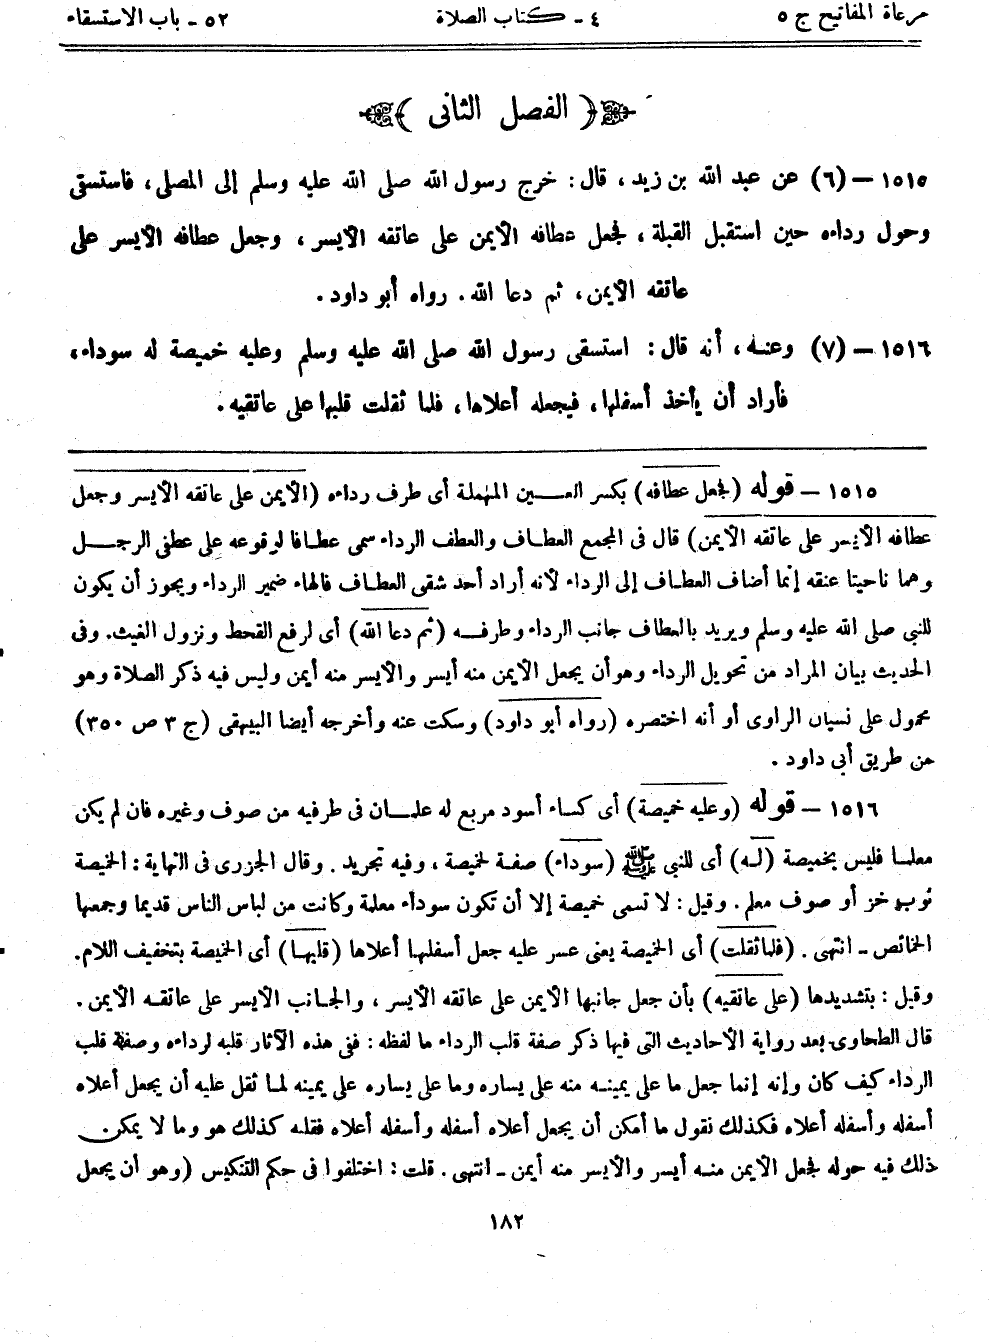 مرعاة المفاتيح ج ٥ ٤ - كتاب الصلاة ٥٢ - باب الاستسقاء
﴿ الفصل الثانى ﴾
١٥١٥ – (٦) عن عبد الله بن زيد، قال: خرج رسول الله صلى الله عليه وسلم إلى المصلى، فاستسقى
وحول رداءه حين استقبل القبلة، فجعل عطافه الأيمن على عاتقه الأيسر، وجعل عطافه الأيسر على
عاتقه الأيمن، ثم دعا الله. رواه أبو داود.
١٥١٦ – (٧) وعنه، أنه قال: استسقى رسول الله صلى الله عليه وسلم وعليه خميصة له سوداء،
فأراد أن يأخذ أسفلها، فيجعله أعلاها، فلما ثقلت قلبها على عاتقيه.
١٥١٥ – قوله (فجعل عطافه) بكسر العين المهملة أى طرف رداءه (الأيمن على عاتقه الأيسر وجعل
عطافه الأيسر على عاتقه الأيمن) قال فى المجمع العطاف والعطف الرداء سمى عطافا لوقوعه على عطفى الرجل
وهما ناحيتا عنقه إنما أضاف العطاف إلى الرداء لأنه أراد أحد شقى العطاف فالهاء ضمير الرداء ويجوز أن يكون
للنبى صلى الله عليه وسلم ويريد بالعطاف جانب الرداء وطرفه (ثم دعا الله) أى لرفع القحط ونزول الغيث. وفى
الحديث بيان المراد من تحويل الرداء وهو أن يجعل الأيمن منه أيسر والأيسر منه أيمن وليس فيه ذكر الصلاة وهو
محمول على نسيان الراوى أو أنه اختصره (رواه أبو داود) وسكت عنه وأخرجه أيضا البيهقى (ج ٣ ص ٣٥٠)
من طريق أبى داود.
١٥١٦ – قوله (وعليه خميصة) أى كساء أسود مربع له علمان فى طرفيه من صوف وغيره فان لم يكن
معلما فليس بخميصة (له) أى للنبى ﷺ (سوداء) صفة لخميصة، وفيه تجريد. وقال الجزرى فى النهاية: الخميصة
ثوب خز أو صوف معلم. وقيل: لا تسمى خميصة إلا أن تكون سوداء معلمة وكانت من لباس الناس قديما وجمعها
الخمائص - انتهى. (فلما ثقلت) أى الخميصة يعنى عسر عليه جعل أسفلها أعلاها (قلبها) أى الخميصة بتخفيف اللام.
وقيل: بتشديدها (على عاتقيه) بأن جعل جانبها الأيمن على عاتقه الأيسر، والجانب الأيسر على عاتقه الأيمن.
قال الطحاوى بعد رواية الأحاديث التى فيها ذكر صفة قلب الرداء ما لفظه: ففى هذه الآثار قلبه لرداءه وصفة قلب
الرداء كيف كان وإنه إنما جعل ما على يمينه منه على يساره وما على يساره على يمينه لما ثقل عليه أن يجعل أعلاه
أسفله وأسفله أعلاه فكذلك نقول ما أمكن أن يجعل أعلاه أسفله وأسفله أعلاه فقلبه كذلك هو وما لا يمكن
ذلك فيه حوله فجعل الأيمن منه أيسر والأيسر منه أيمن - انتهى. قلت: اختلفوا فى حكم التنكيس (وهو أن يجعل
١٨٢